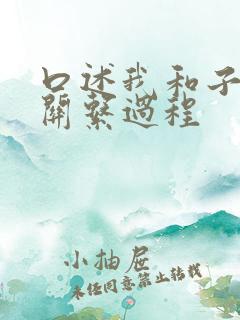 口述我和子
關繫過程
小抽屉
未经同意禁止转载